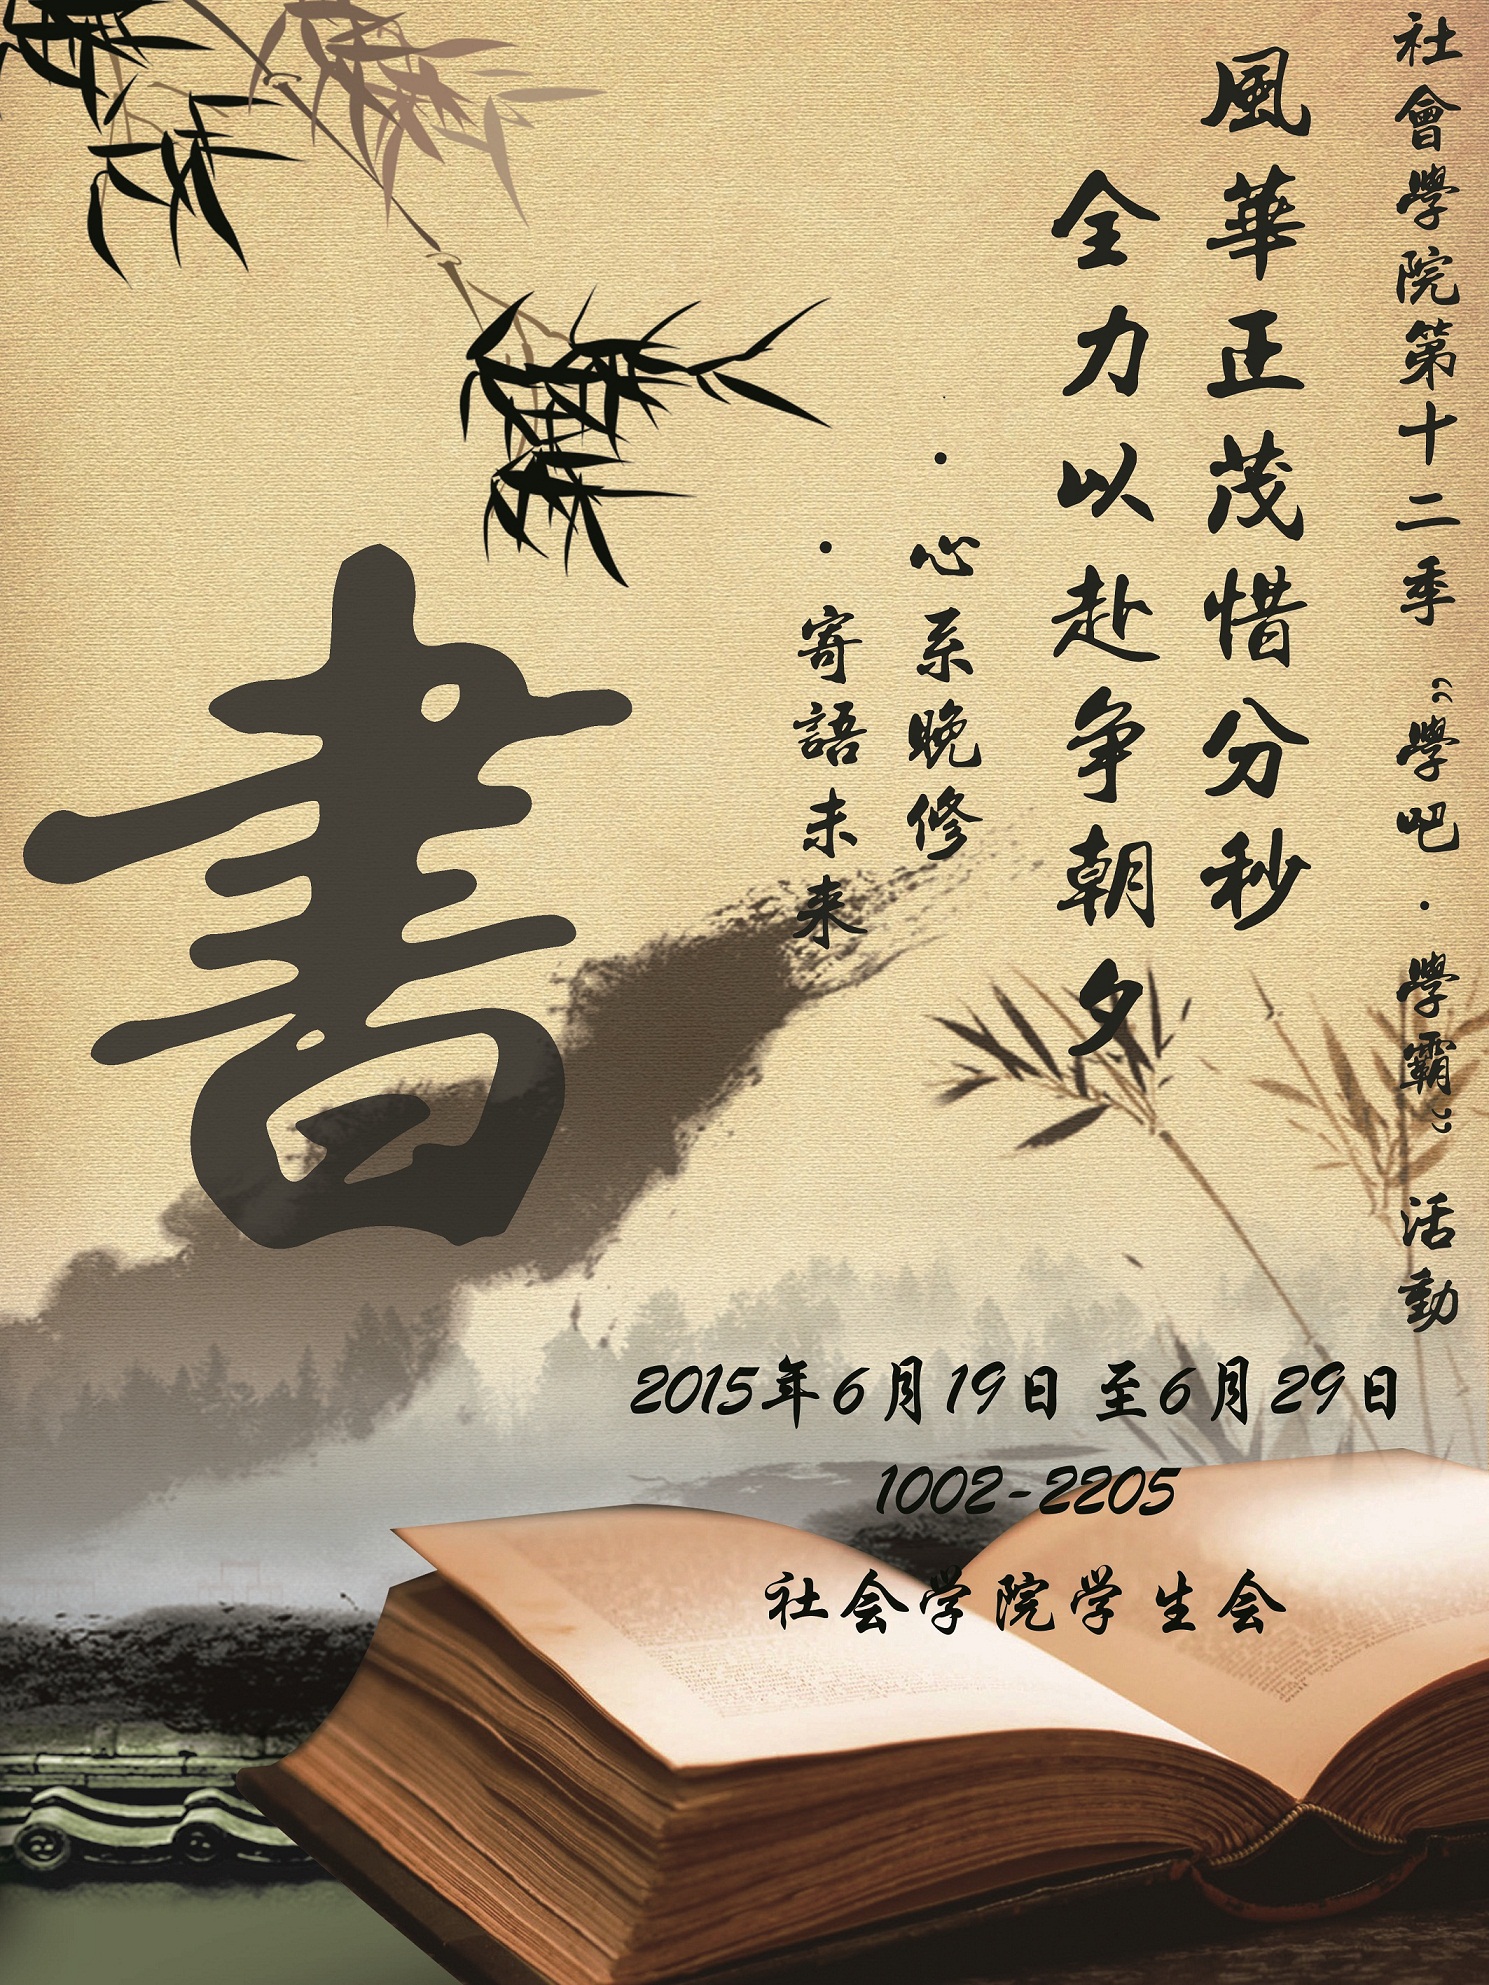 社會學院第十二季“學吧·學霸”活動
風華正茂惜分秒
全力以赴争朝夕
·心系晚修
·寄語未来
書
2015年6月19日 至6月29日
1002-2205
社会学院学生会